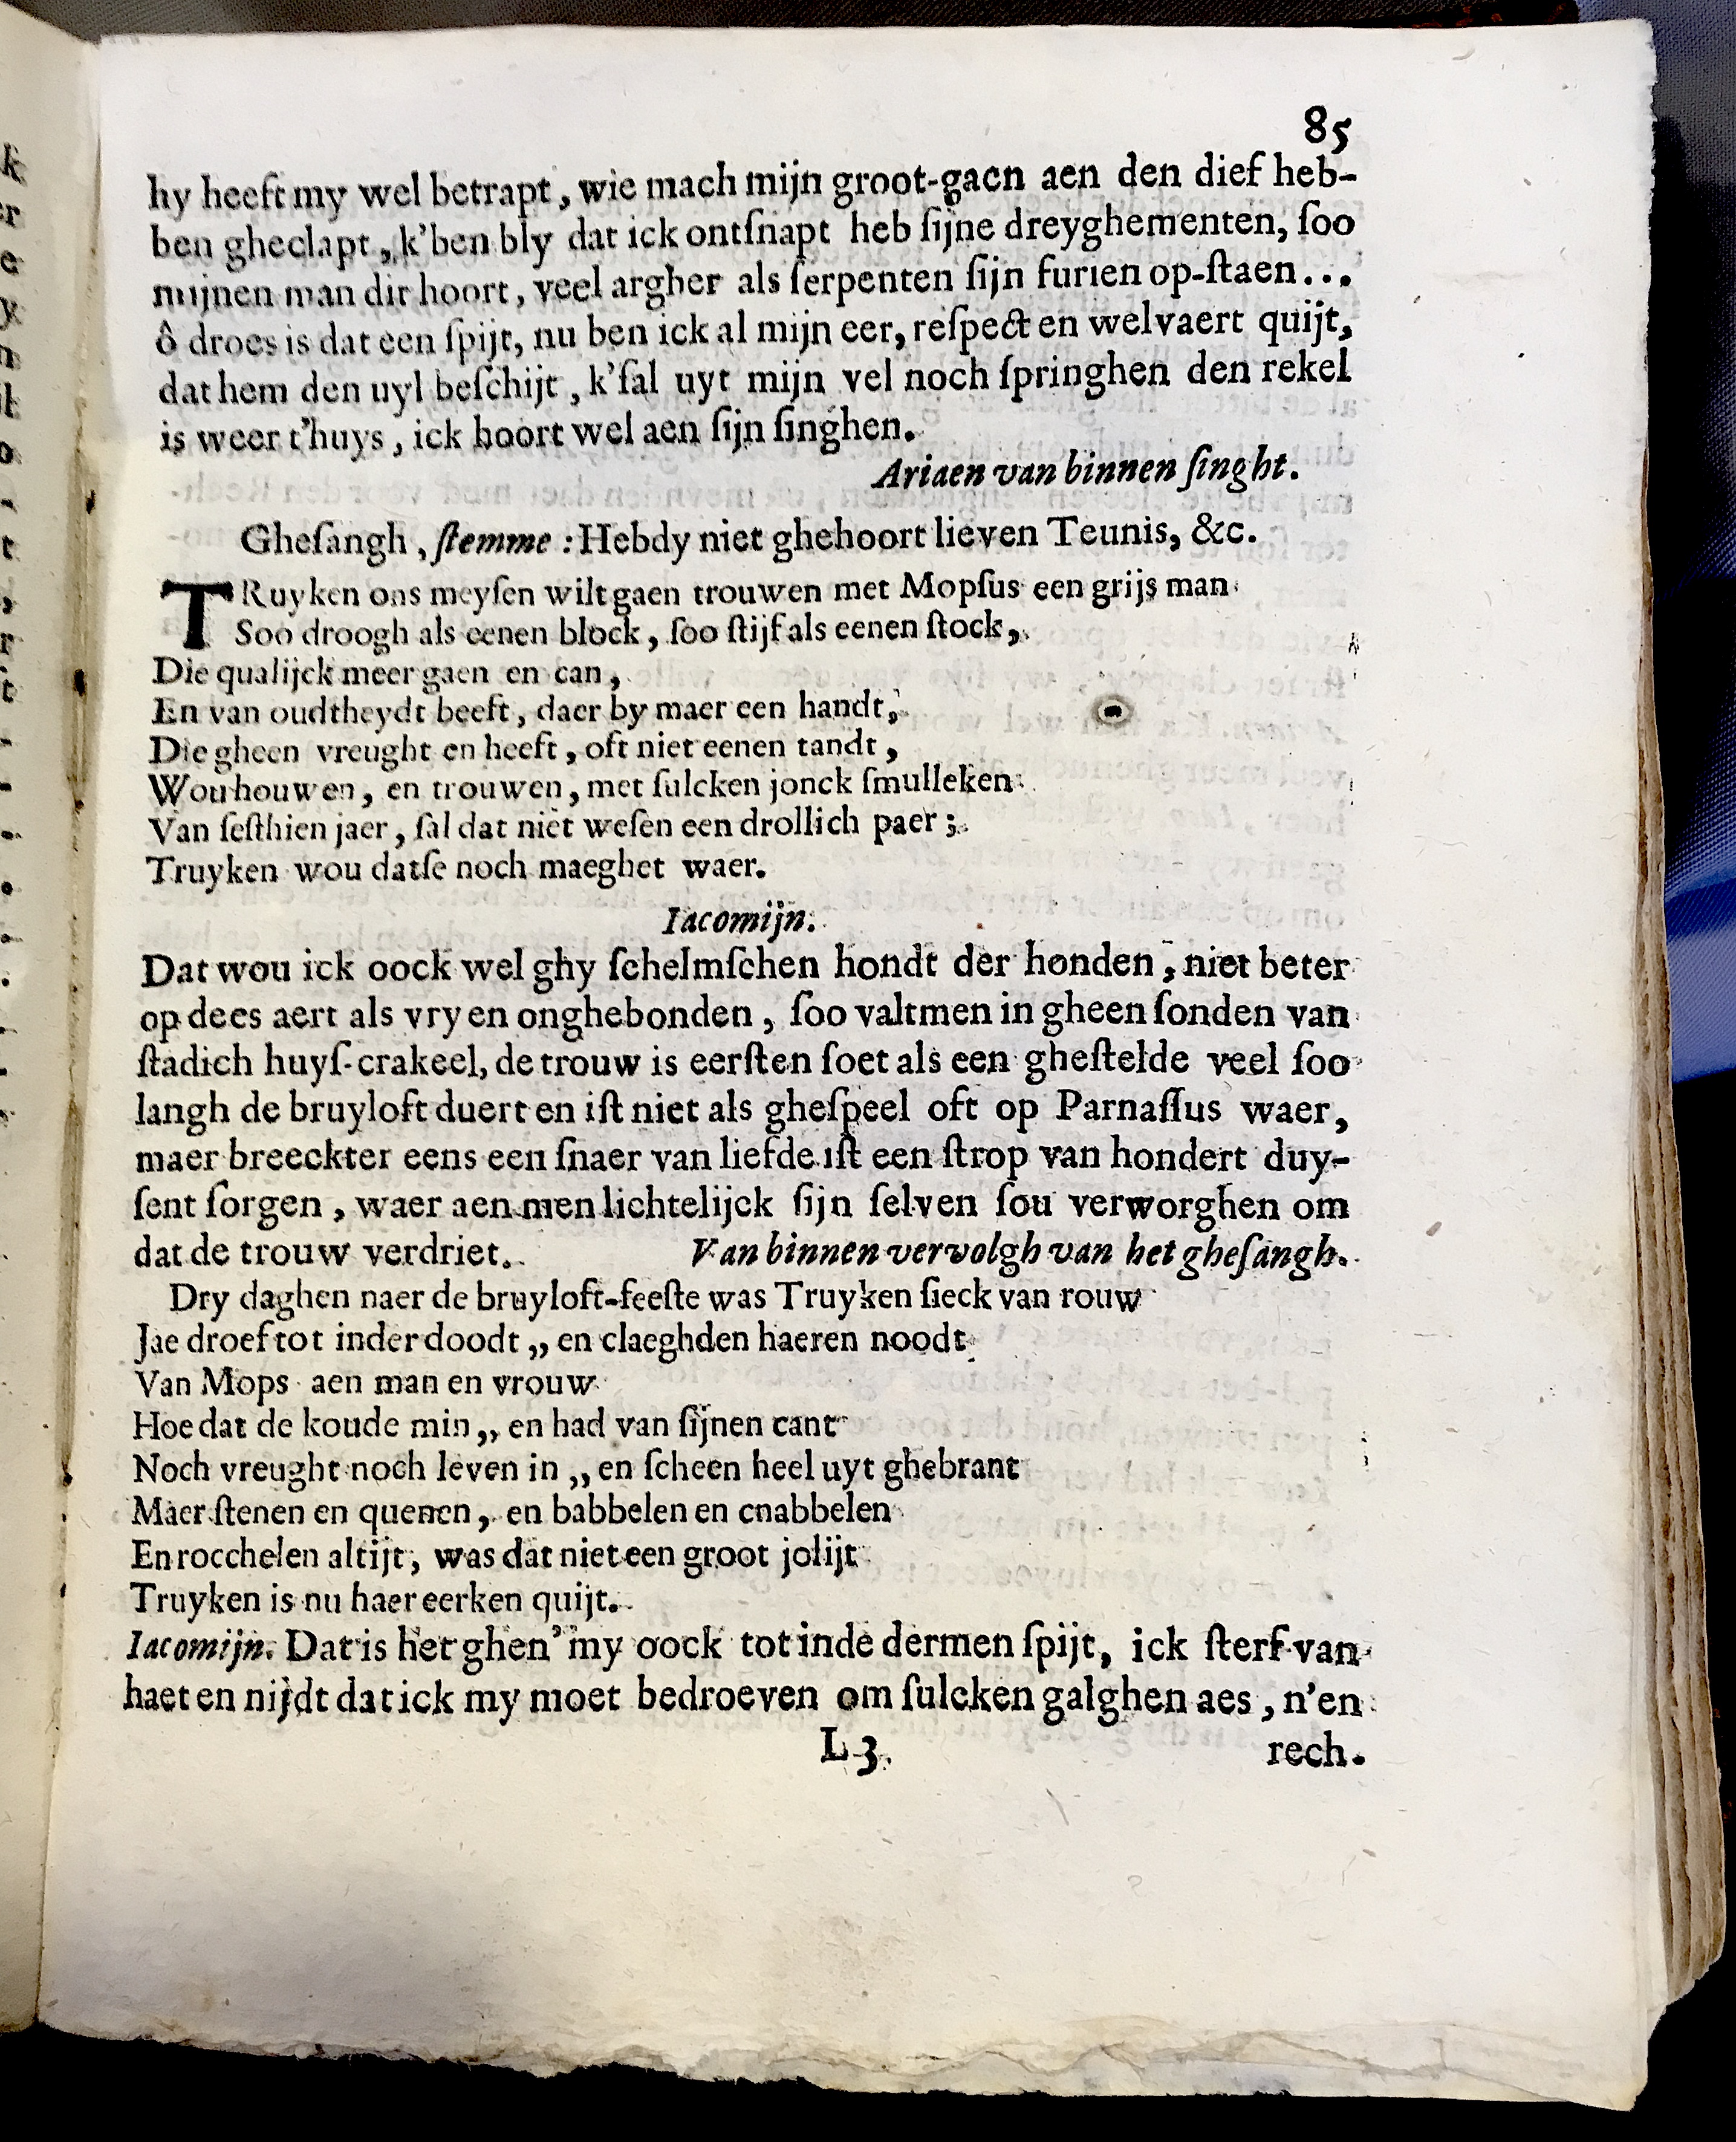 85
hy heeft my wel betrapt, wie mach mijn groot-gaen aen den dief heb-
ben gheclapt, k'ben bly dat ick ontſnapt heb ſijne dreyghementen, ſoo
mijnen man dit hoort, veel argher als ſerpenten ſijn furien op-ſtaen...
ô droes is dat een ſpijt, nu ben ick al mijn eer, reſpect en welvaert quijt,
dat hem den uyl beſchijt, k'ſal uyt mijn vel noch ſpringhen den rekel
is weer t'huys, ick hoort wel aen ſijn ſinghen.
Ariaen van binnen ſinght.
Gheſangh, ſtemme: Hebdy niet ghehoort lieven Teunis, &c.
TRuyken ons meyſen wilt gaen trouwen met Mopſus een grijs man
Soo droogh als eenen block, ſoo ſtijf als eenen ſtock,
Die qualijck meer gaen en can,
En van oudtheydt beeft, daer by maer een handt,
Die gheen vreught en heeft, oft niet eenen tandt,
Wou houwen, en trouwen, met ſulcken jonck ſmulleken
Van ſeſthien jaer, ſal dat niet weſen een drollich paer;
Truyken wou datſe noch maeghet waer.
Iacomijn.
Dat wou ick oock wel ghy ſchelmſchen hondt der honden, niet beter
op dees aert als vry en onghebonden, ſoo valtmen in gheen ſonden van
ſtadich huyſ-crakeel, de trouw is eerſten ſoet als een gheſtelde veel ſoo
langh de bruyloft duert en iſt niet als gheſpeel oft op Parnaſſus waer,
maer breeckter eens een ſnaer van liefde iſt een ſtrop van hondert duy-
ſent ſorgen, waer aen men lichtelijck ſijn ſelven ſou verworghen om
dat de trouw verdriet. Van binnen vervolgh van het gheſangh.
Dry daghen naer de bruyloft-feeſte was Truyken ſieck van rouw
Jae droef tot inder doodt,, en claeghden haeren noodt
Van Mops aen man en vrouw
Hoe dat de koude min,, en had van ſijnen cant
Noch vreught noch leven in,, en ſcheen heel uyt ghebrant
Maer ſtenen en quenen, en babbelen en cnabbelen
En rocchelen altijt, was dat niet een groot jolijt
Truyken is nu haer eerken quijt.
Iacomijn. Dat is het ghen' my oock tot inde dermen ſpijt, ick ſterf van
haet en nijdt dat ick my moet bedroeven om ſulcken galghen aes, n'en
L 3
rech.